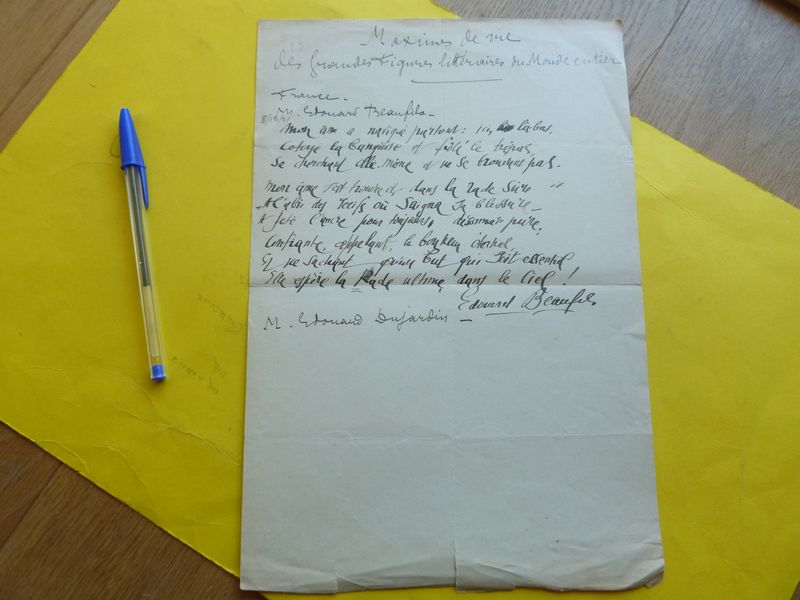 Maximes de vie
des Grandes Figures littéraires du Monde entier
France -
M. Edouard Beaufils -
Mon âme a navigué partout : ici, là bas.
Cotoyé la banquise et frôlé le trépas
Se cherchant elle-même et ne se trouvant pas.
Mon âme s'est trouvée dans la rade sûre
A l'abri des récifs où saigna sa blessure -
A jeté l'ancre pour toujours, désormais pure,
Confiante, appelant le bonheur éternel
Et ne sachant qu'un but qui soit essentiel
Elle espère la Rade ultime dans le Ciel !
Edouard Beaufils
M. Edouard Dujardin -